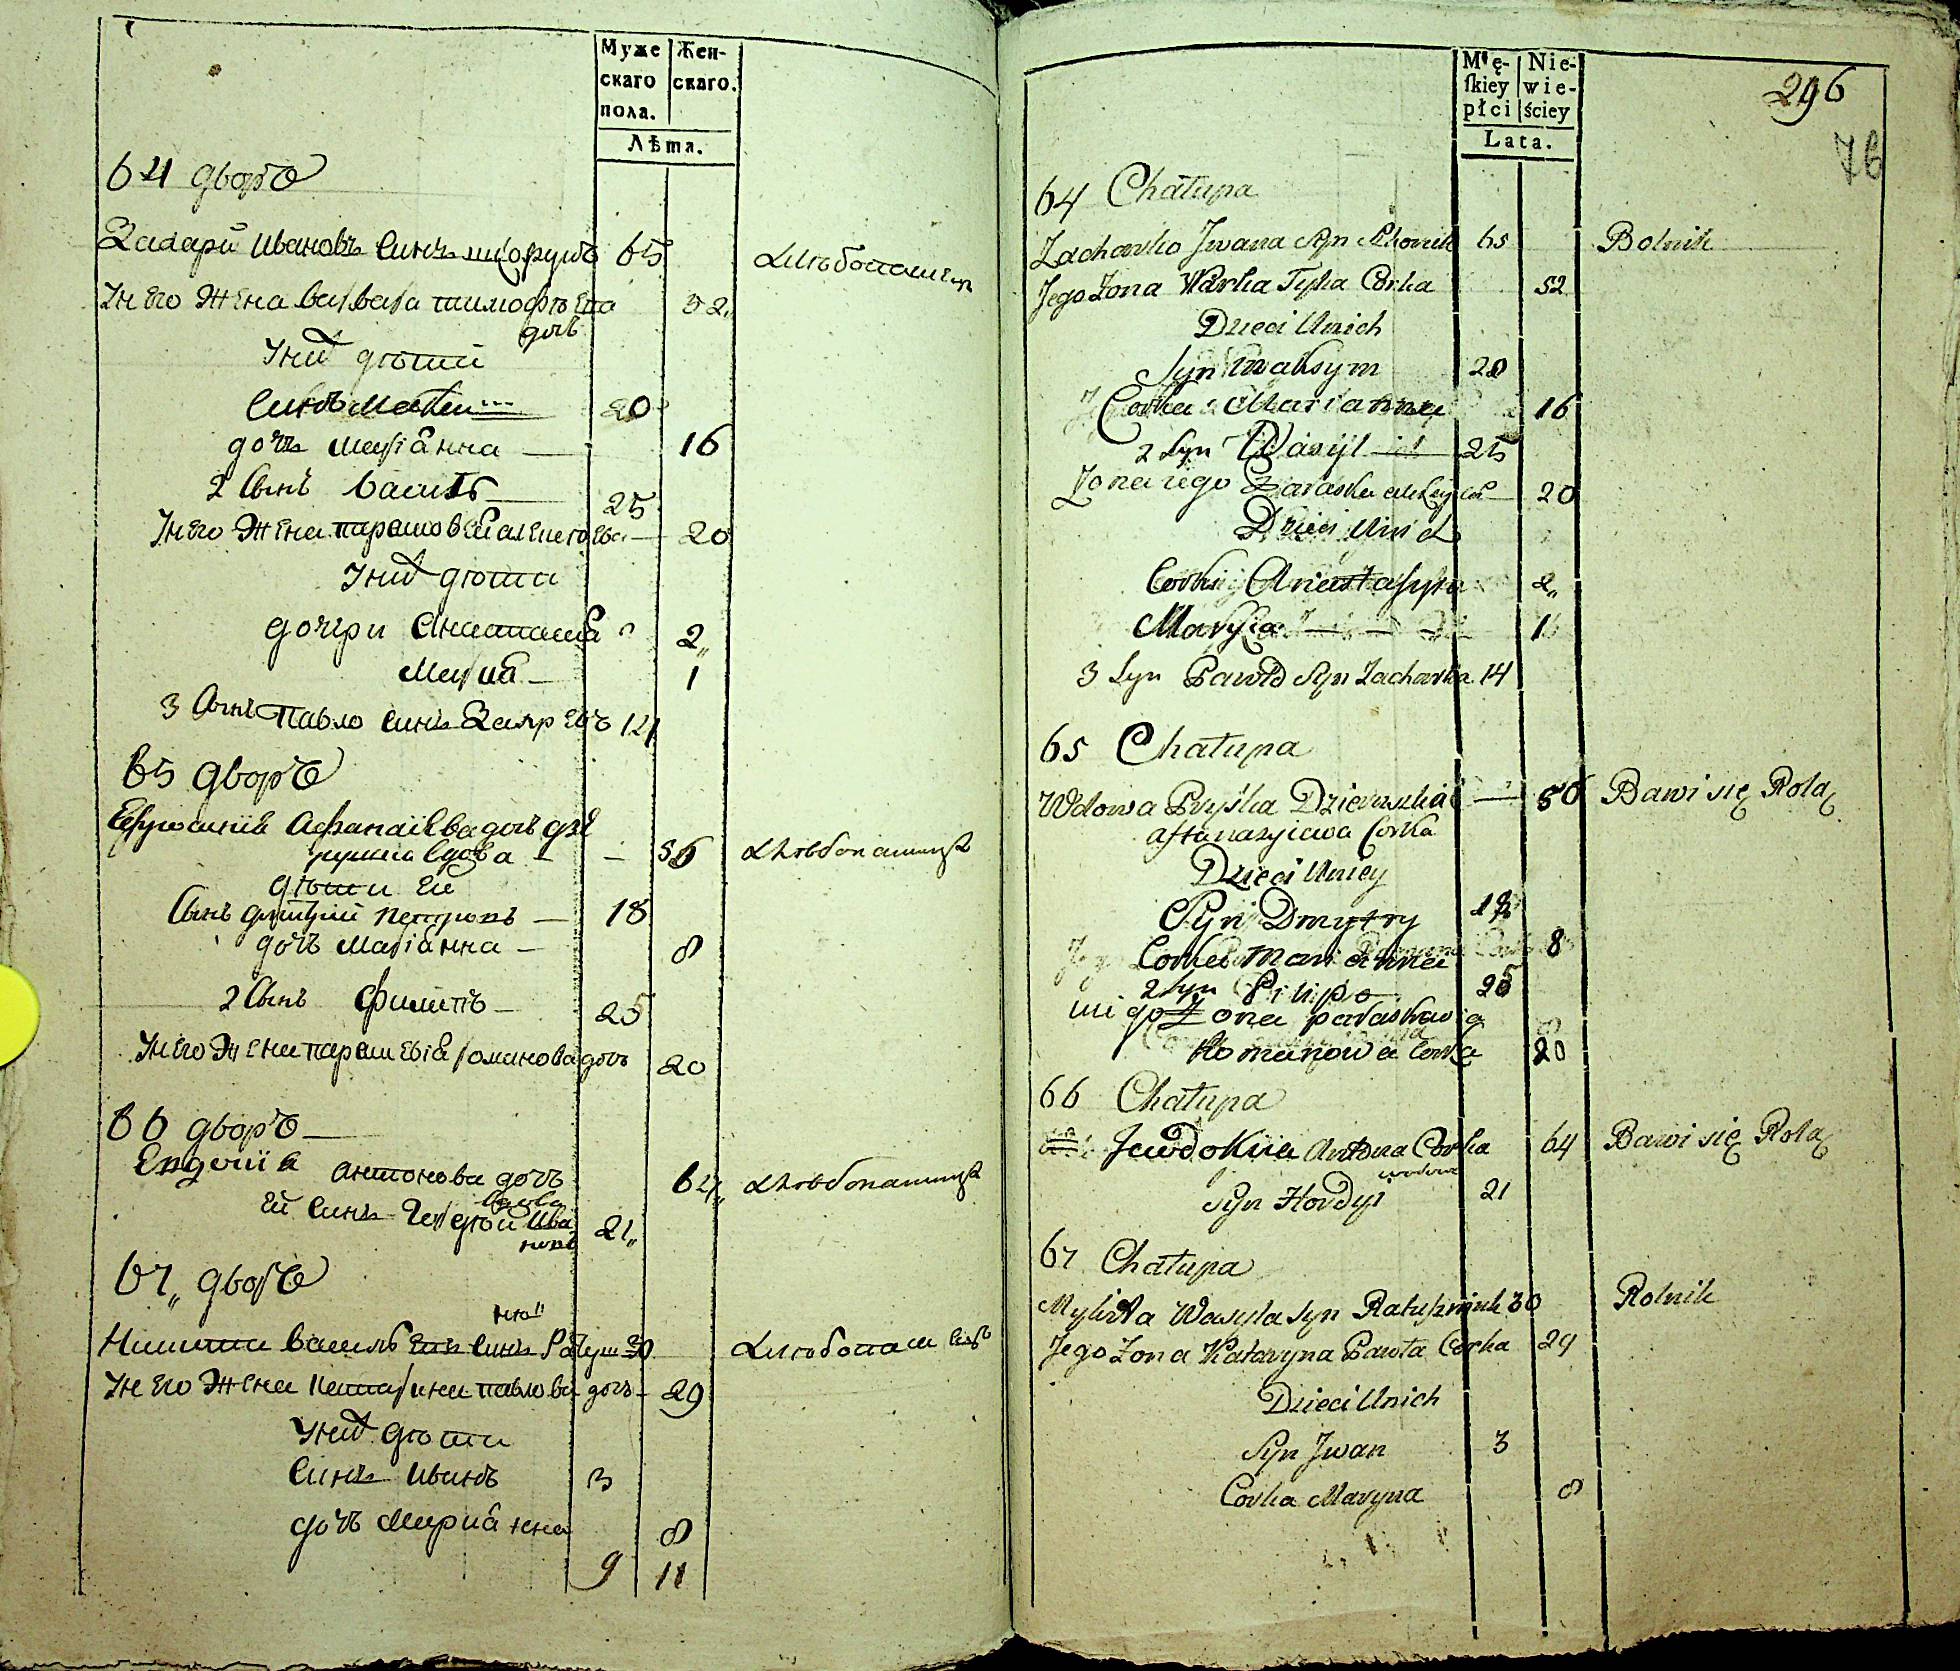 Муже
скаго
пола.
Жен-
скаго.
Лѣта.
64 дворъ
Захарій Ивановъ Синъ 65
Хлѣбопашецъ
У него Жена Варвара тимофѣева 52
дочь
У них дѣти
Синъ 20
дочь Маріанна 16
2 Сынъ Василь 25
У него Жена парасковея алексѣева 20
У них дѣти
дочери Анастасія 2
Марія 1
3 Сынъ Павло Синъ 14
65 дворъ
Ефросинія Афанасіева дочь
вдова 56 Хлѣбопашица
дѣти ей
Сынъ дмитрій Петровъ 18
дочь Маріанна 8
2 Сынъ Филипъ 25
У него Жена Романова дочь 20
66 дворъ
Евдокія антонова дочь 64 Хлѣбопашица
вдова
ей Синъ Гордѣй Ива
новъ 21
67 дворъ
Никита Василь Синъ 30
Хлѣбопашецъ
У него Жена Катарина павлова дочь 29
У них дѣти
Синъ Иванъ 3
дочь Маріанна 8
9 11
Mę-
ſkiey
płci
Nie-
wie-
ściey
Lata.
296
76
64 Chałupa
Zacharko Jwana Syn 65 Rolnik
Jego Zona Warka Corka 52
Dzieci Unich
Syn Maksym 20
Corka Marianna 16
2 Syn Wasyl 25
Zona iego Paraska 20
Dzieci Unich
Corki Anastasya 2
Marysia 1
3 Syn Pawło Syn Zacharka 14
65 Chałupa
Wdowa Pryśka 56 Bawi się Rolą
aftanazyiowa Corka
Dzieci Uniey
Syn Dmytry 18
Corka Marianna 8
2 Syn Pilipo 25
Zona paraskawia
Romanowa Corka 20
66 Chałupa
Jewdokiia Antona Corka 64 Bawi się Rolą
wdowa
Syn Hordyi 21
67 Chałupa
Mykita Wasyla Syn Ratuszniuk 30 Rolnik
Jego Zona Kataryna Pawła Corka 29
Dzieci Unich
Syn Jwan 3
Corka Maryna 8